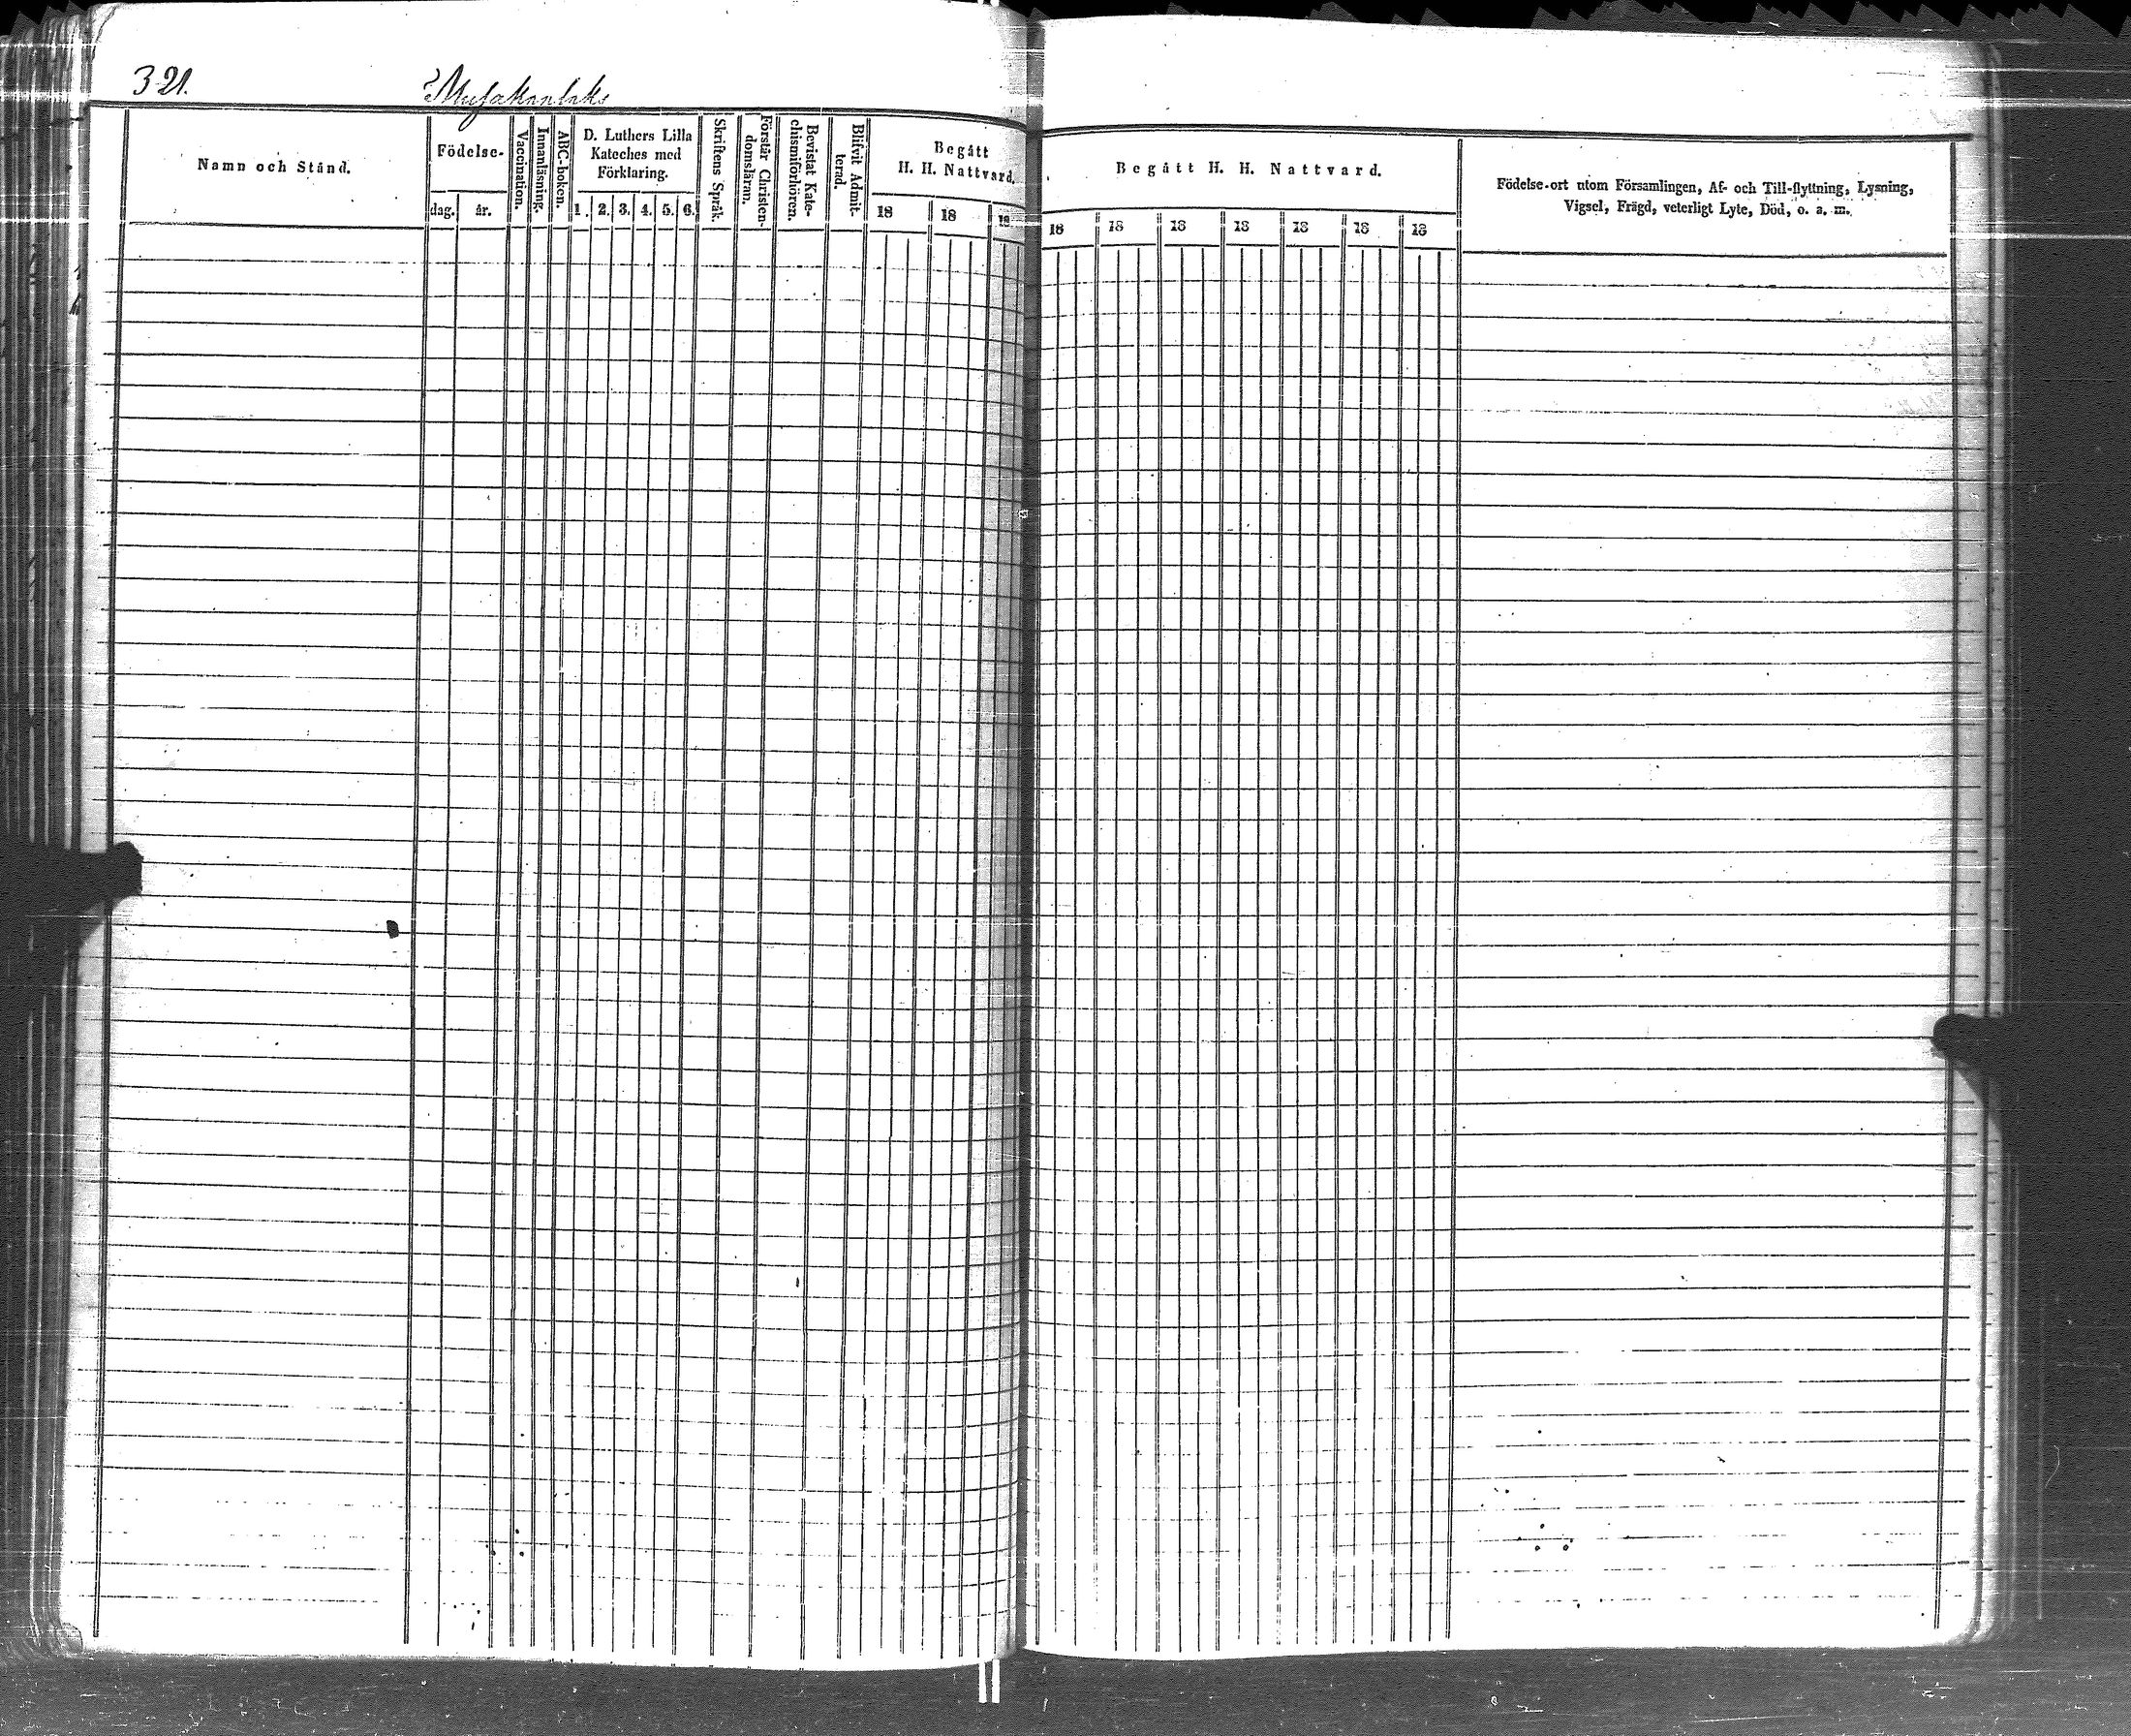 321.
Namn och Stånd.
Födelse-
dag.
år.
Vaccination.
Innanläsning.
ABC-boken.
D. Luthers Lilla
Kateches med
Förklaring.
1.
2.
3.
4.
5.
6.
Skriftens Språk.
Förstår Christen-
domsläran.
Bevistat Kate-
chismiförhören.
Blifvit Admit-
terad.
Begått
H. H. Nattvard.
18
18
18
Begått H. H. Nattvard.
18
18
18
18
18
18
18
Födelse-ort utom Församlingen, Af- och Till-flyttning, Lysning,
Vigsel, Frägd, veterligt Lyte, Död, o. a. m.